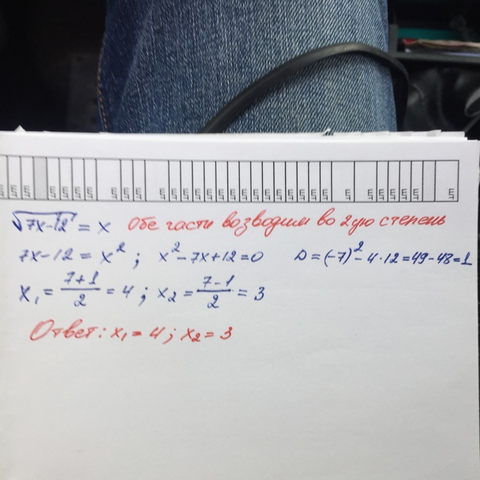 √7x-12 = x Обе части возводим во 2ую степень
7x-12 = x²; x²-7x+12=0 D=(-7)²-4·12=49-48=1
x₁ = 7+1/2 = 4; x₂ = 7-1/2 = 3
Ответ: x₁=4; x₂=3